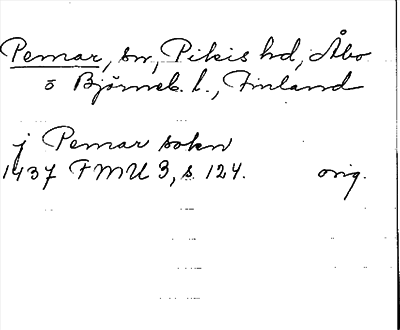 Pemar, sn, Pikis hd, Åbo
o Björneb. l., Finland
j Pemar sokn
1437 FMU 3, s. 124. orig.